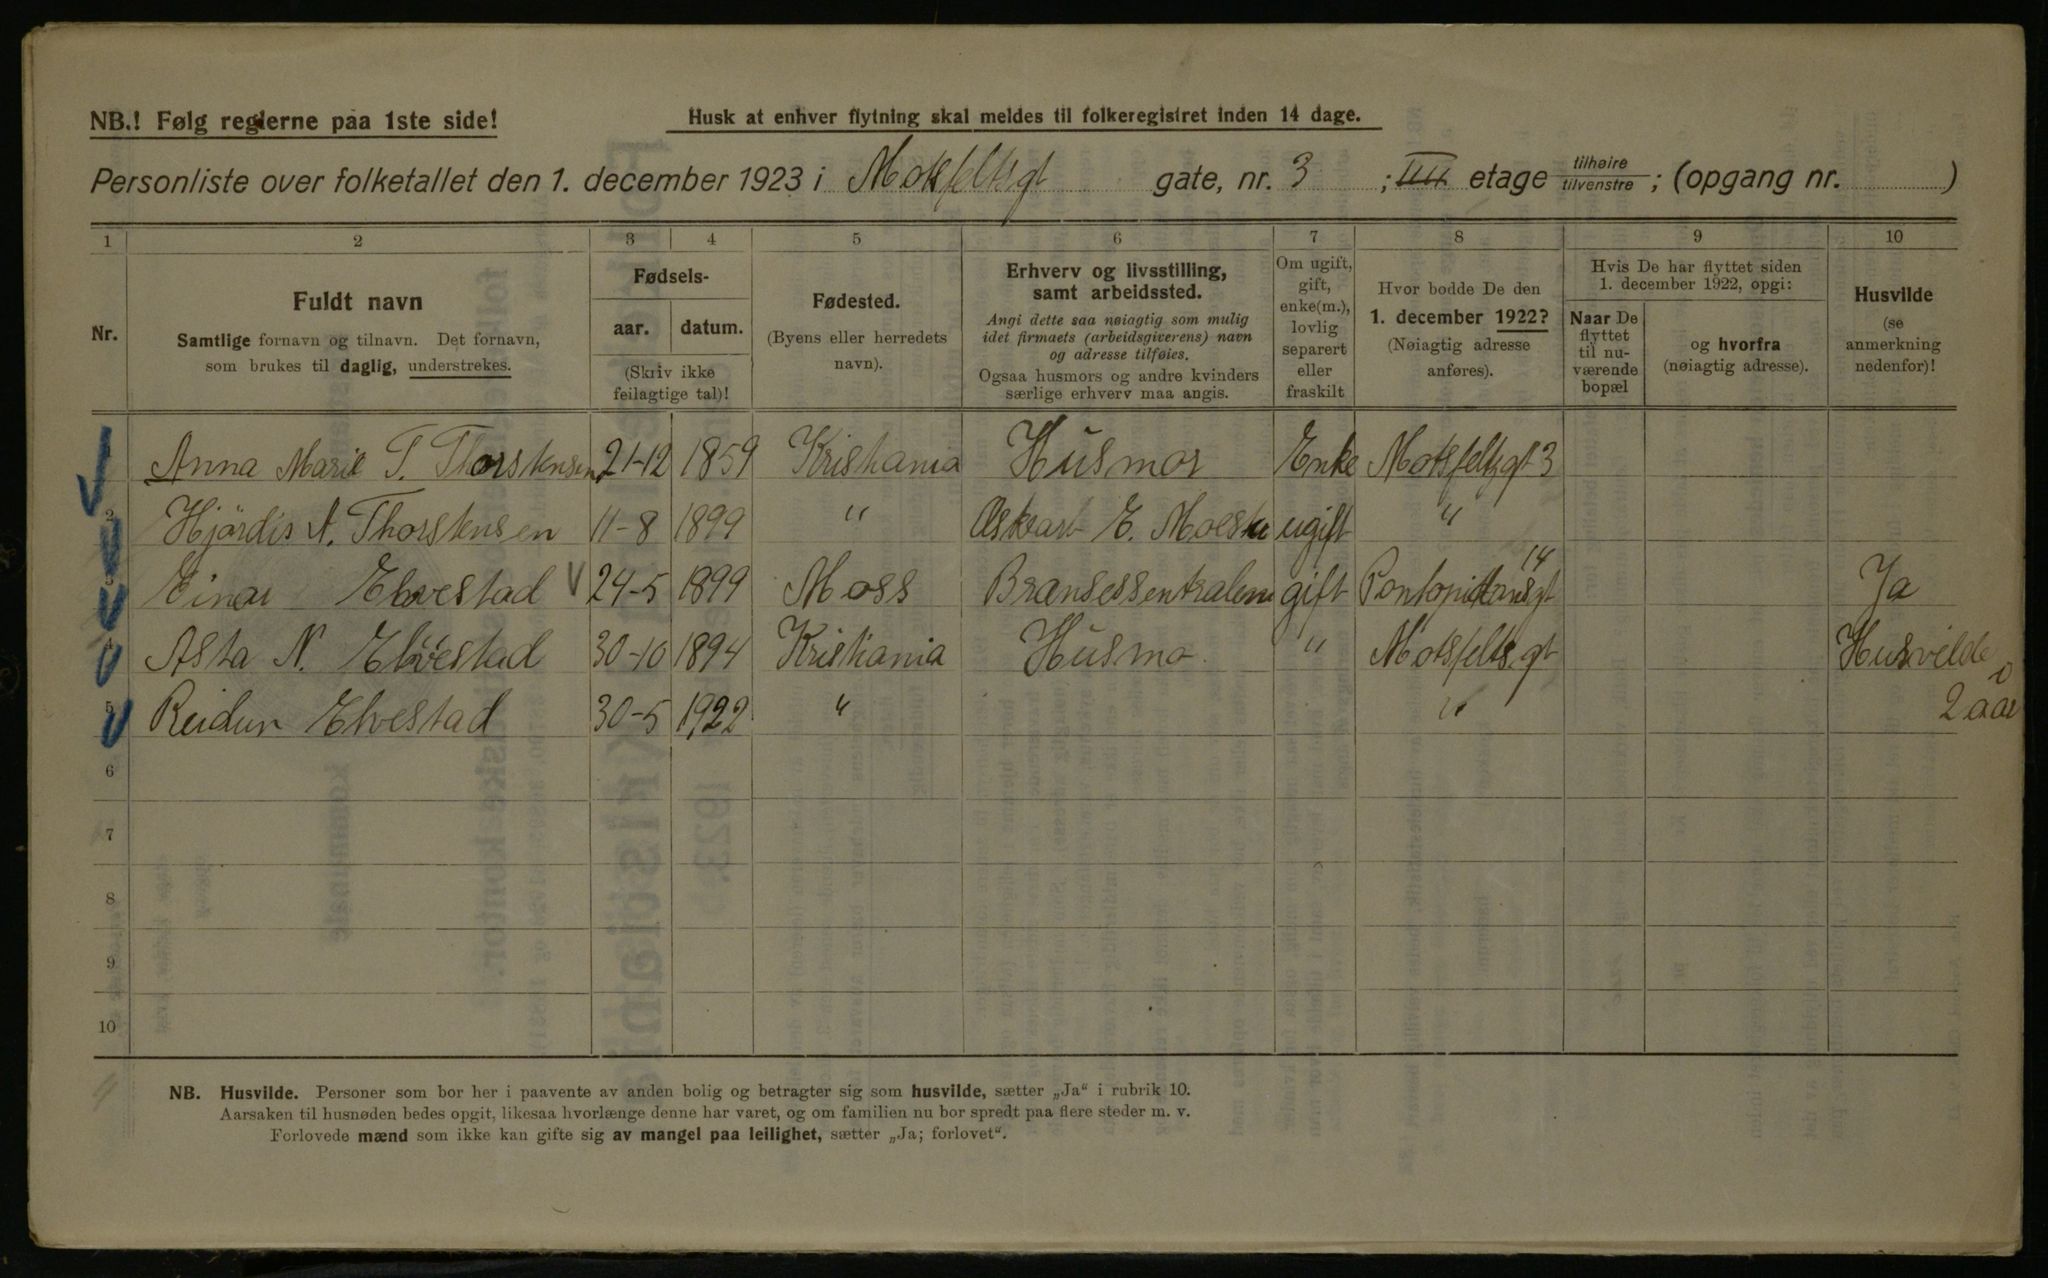 NB.! Følg reglerne paa 1ste side!
Husk at enhver flytning skal meldes til folkeregistret inden 14 dage.
Personliste over folketallet den 1. december 1923 i Motsfeltsgt gate, nr. 3 ; IIII etage tilhøire tilvenstre ; (opgang nr. )
1 2 3 4 5 6 7 8 9 10
Nr.
Fuldt navn
Samtlige fornavn og tilnavn. Det fornavn,
som brukes til daglig, understrekes.
Fødsels-
aar. datum.
(Skriv ikke
feilagtige tal)!
Fødested.
(Byens eller herredets
navn).
Erhverv og livsstilling,
samt arbeidssted.
Angi dette saa nøiagtig som mulig
idet firmaets (arbeidsgiverens) navn
og adresse tilføies.
Ogsaa husmors og andre kvinders
særlige erhverv maa angis.
Om ugift,
gift,
enke(m.),
lovlig
separert
eller
fraskilt
Hvor bodde De den
1. december 1922?
(Nøiagtig adresse
anføres).
Hvis De har flyttet siden
1. december 1922, opgi:
Naar De
flyttet
til nu-
værende
bopæl
og hvorfra
(nøiagtig adresse).
Husvilde
(se
anmerkning
nedenfor)!
1 Anna Marie T. Thorstensen 21-12 1859 Kristiania Husmor Enke Motsfeltsgt 3
2 Hjördis A. Thorstensen 11-8 1899 " E. Moestu ugift "
3 Einar Elvestad 24-5 1899 Moss Brænselssentralen gift Pontopidansgt 14 Ja
4 Asta N. Elvestad 30-10 1894 Kristiania Husmo. " Motsfeltsgt Husvilde i
5 Reidun Elvestad 30-5 1922 " " 2 aar
6
7
8
9
10
NB. Husvilde. Personer som bor her i paavente av anden bolig og betragter sig som husvilde, sætter „Ja“ i rubrik 10.
Aarsaken til husnøden bedes opgit, likesaa hvorlænge denne har varet, og om familien nu bor spredt paa flere steder m. v.
Forlovede mænd som ikke kan gifte sig av mangel paa leilighet, sætter „Ja; forlovet“.